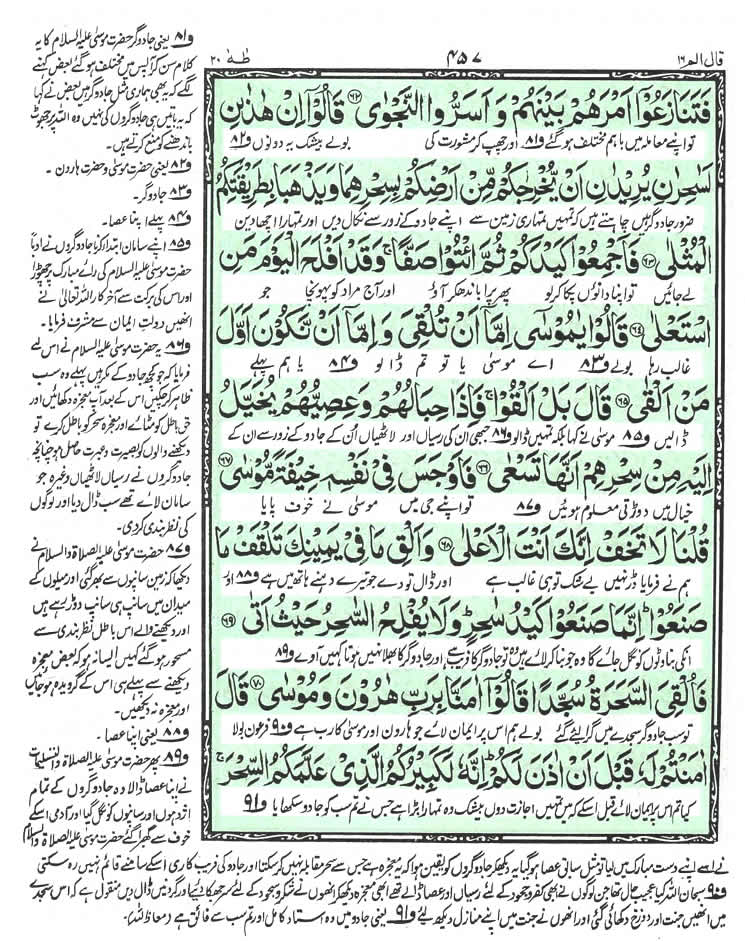 قال الم ۱۶ ۴۵۷ طٰهٰ ۲۰
فَتَنَازَعُوْۤا اَمْرَهُمْ بَيْنَهُمْ وَ اَسَرُّوا النَّجْوٰى ﴿۶۲﴾ قَالُوْۤا اِنْ هٰذٰىنِ
تو اپنے معاملہ میں باہم مختلف ہو گئے و۸۱ اور چھپ کر مشورت کی بولے بیشک یہ دونوں و۸۲
لَسٰحِرٰنِ يُرِيْدٰنِ اَنْ يُّخْرِجٰكُمْ مِّنْ اَرْضِكُمْ بِسِحْرِهِمَا وَيَذْهَبَا بِطَرِيْقَتِكُمُ
ضرور جادوگر ہیں چاہتے ہیں کہ تمہیں تمہاری زمین سے اپنے جادو کے زور سے نکال دیں اور تمہارا اچھا دین
الْمُثْلٰى ﴿۶۳﴾ فَاَجْمِعُوْا كَيْدَكُمْ ثُمَّ ائْتُوْا صَفًّا ۚ وَقَدْ اَفْلَحَ الْيَوْمَ مَنِ
لے جائیں تو اپنا داؤں پکا کر لو پھر پرا باندھ کر آؤ اور آج مراد کو پہونچا جو
اسْتَعْلٰى ﴿۶۴﴾ قَالُوْا يٰمُوْسٰۤى اِمَّاۤ اَنْ تُلْقِيَ وَاِمَّاۤ اَنْ نَّكُوْنَ اَوَّلَ
غالب رہا بولے و۸۳ اے موسیٰ یا تو تم ڈالو و۸۴ یا ہم پہلے
مَنْ اَلْقٰى ﴿۶۵﴾ قَالَ بَلْ اَلْقُوْا ۚ فَاِذَا حِبَالُهُمْ وَعِصِيُّهُمْ يُخَيَّلُ
ڈالیں و۸۵ موسیٰ نے کہا بلکہ تمہیں ڈالو و۸۶ جبھی ان کی رسیاں اور لاٹھیاں اُن کے جادو کے زور سے ان کے
اِلَيْهِ مِنْ سِحْرِهِمْ اَنَّهَا تَسْعٰى ﴿۶۶﴾ فَاَوْجَسَ فِيْ نَفْسِهٖ خِيْفَةً مُّوْسٰى ﴿۶۷﴾
خیال میں دوڑتی معلوم ہوئیں و۸۷ تو اپنے جی میں موسیٰ نے خوف پایا
قُلْنَا لَا تَخَفْ اِنَّكَ اَنْتَ الْاَعْلٰى ﴿۶۸﴾ وَاَلْقِ مَا فِيْ يَمِيْنِكَ تَلْقَفْ مَا
ہم نے فرمایا ڈر نہیں بے شک تو ہی غالب ہے اور ڈال تو دے جو تیرے دہنے ہاتھ میں ہے و۸۸ اور
صَنَعُوْا ؕ اِنَّمَا صَنَعُوْا كَيْدُ سٰحِرٍ ؕ وَلَا يُفْلِحُ السَّاحِرُ حَيْثُ اَتٰى ﴿۶۹﴾
انکی بناوٹوں کو نگل جائے گا وہ جو بنا کر لائے ہیں وہ تو جادوگر کا فریب ہے اور جادوگر کا بھلا نہیں ہوتا کہیں آوے و۸۹
فَاُلْقِيَ السَّحَرَةُ سُجَّدًا قَالُوْۤا اٰمَنَّا بِرَبِّ هٰرُوْنَ وَمُوْسٰى ﴿۷۰﴾ قَالَ
تو سب جادوگر سجدے میں گرا لیے گئے بولے ہم اس پر ایمان لائے جو ہارون اور موسیٰ کا رب ہے و۹۰ فرعون بولا
اٰمَنْتُمْ لَهٗ قَبْلَ اَنْ اٰذَنَ لَكُمْ ؕ اِنَّهٗ لَكَبِيْرُكُمُ الَّذِيْ عَلَّمَكُمُ السِّحْرَ ۚ
کیا تم اس پر ایمان لائے قبل اسکے کہ میں تمہیں اجازت دوں بیشک وہ تمہارا بڑا ہے جس نے تم سب کو جادو سکھایا و۹۱
و۸۱ یعنی جادوگر حضرت موسیٰ علیہ السلام کا یہ
کلام سن کر آپس میں مختلف ہو گئے بعض کہنے
لگے کہ یہ بھی ہماری مثل جادوگر ہیں بعض نے کہا
کہ یہ باتیں ہی جادوگروں کی نہیں وہ اللہ پر جھوٹ
باندھنے کو منع کرتے ہیں۔
و۸۲ یعنی حضرت موسیٰ و حضرت ہارون۔
و۸۳ جادوگر۔
و۸۴ پہلے اپنا عصا۔
و۸۵ اپنے سامان ابتدا کرنا جادوگروں نے ادباً
حضرت موسیٰ علیہ السلام کی رائے مبارک پر چھوڑا
اور اس کی برکت سے آخر کار اللہ تعالیٰ نے
انھیں دولتِ ایمان سے مشرف فرمایا۔
و۸۶ یہ حضرت موسیٰ علیہ السلام نے اس لیے
فرمایا کہ جو کچھ جادو کے مکر ہیں پہلے وہ سب
ظاہر کر چکیں اس کے بعد آپ معجزہ دکھائیں اور
حق باطل کو مٹائے اور معجزہ سحر کو باطل کرے تو
دیکھنے والوں کو بصیرت و عبرت حاصل ہو چنانچہ
جادوگروں نے رسیاں لاٹھیاں وغیرہ جو
سامان لائے تھے سب ڈال دیا اور لوگوں
کی نظر بندی کر دی۔
و۸۷ حضرت موسیٰ علیہ الصلاۃ والسلام نے
دیکھا کہ زمین سانپوں سے بھر گئی اور میلوں کے
میدان میں سانپ ہی سانپ دوڑ رہے ہیں
اور دیکھنے والے اس باطل نظر بندی سے
مسحور ہو گئے کہیں ایسا نہ ہو کہ بعض معجزہ
دیکھنے سے پہلے ہی اس کے گرویدہ ہو جائیں
اور معجزہ نہ دیکھیں۔
و۸۸ یعنی اپنا عصا۔
و۸۹ پھر حضرت موسیٰ علیہ الصلاۃ والتسلیمات
نے اپنا عصا ڈالا وہ جادوگروں کے تمام
اژدہوں اور سانپوں کو نگل گیا اور آدمی اسکے
خوف سے گھبرا گئے حضرت موسیٰ علیہ الصلاۃ والسلام
نے اسے اپنے دست مبارک میں لیا تو مثل سابق عصا ہو گیا یہ دیکھ کر جادوگروں کو یقین ہوا کہ یہ معجزہ ہے جس سے سحر مقابلہ نہیں کر سکتا اور جادو کی فریب کاری اسکے سامنے قائم نہیں رہ سکتی
و۹۰ سبحان اللہ کیا عجیب حال تھا جن لوگوں نے ابھی کفر و جحود کے لئے رسیاں اور عصا ڈالے تھے ابھی معجزہ دیکھ کر انھوں نے شکر و سجود کے لئے سر جھکا دیئے اور گردنیں ڈال دیں منقول ہے کہ اس سجدے
میں انھیں جنت اور دوزخ دکھائی گئی اور انھوں نے جنت میں اپنے منازل دیکھ لیے و۹۱ یعنی جادو میں وہ استاد کامل اور تم سب سے فائق ہے (معاذ اللہ)۔